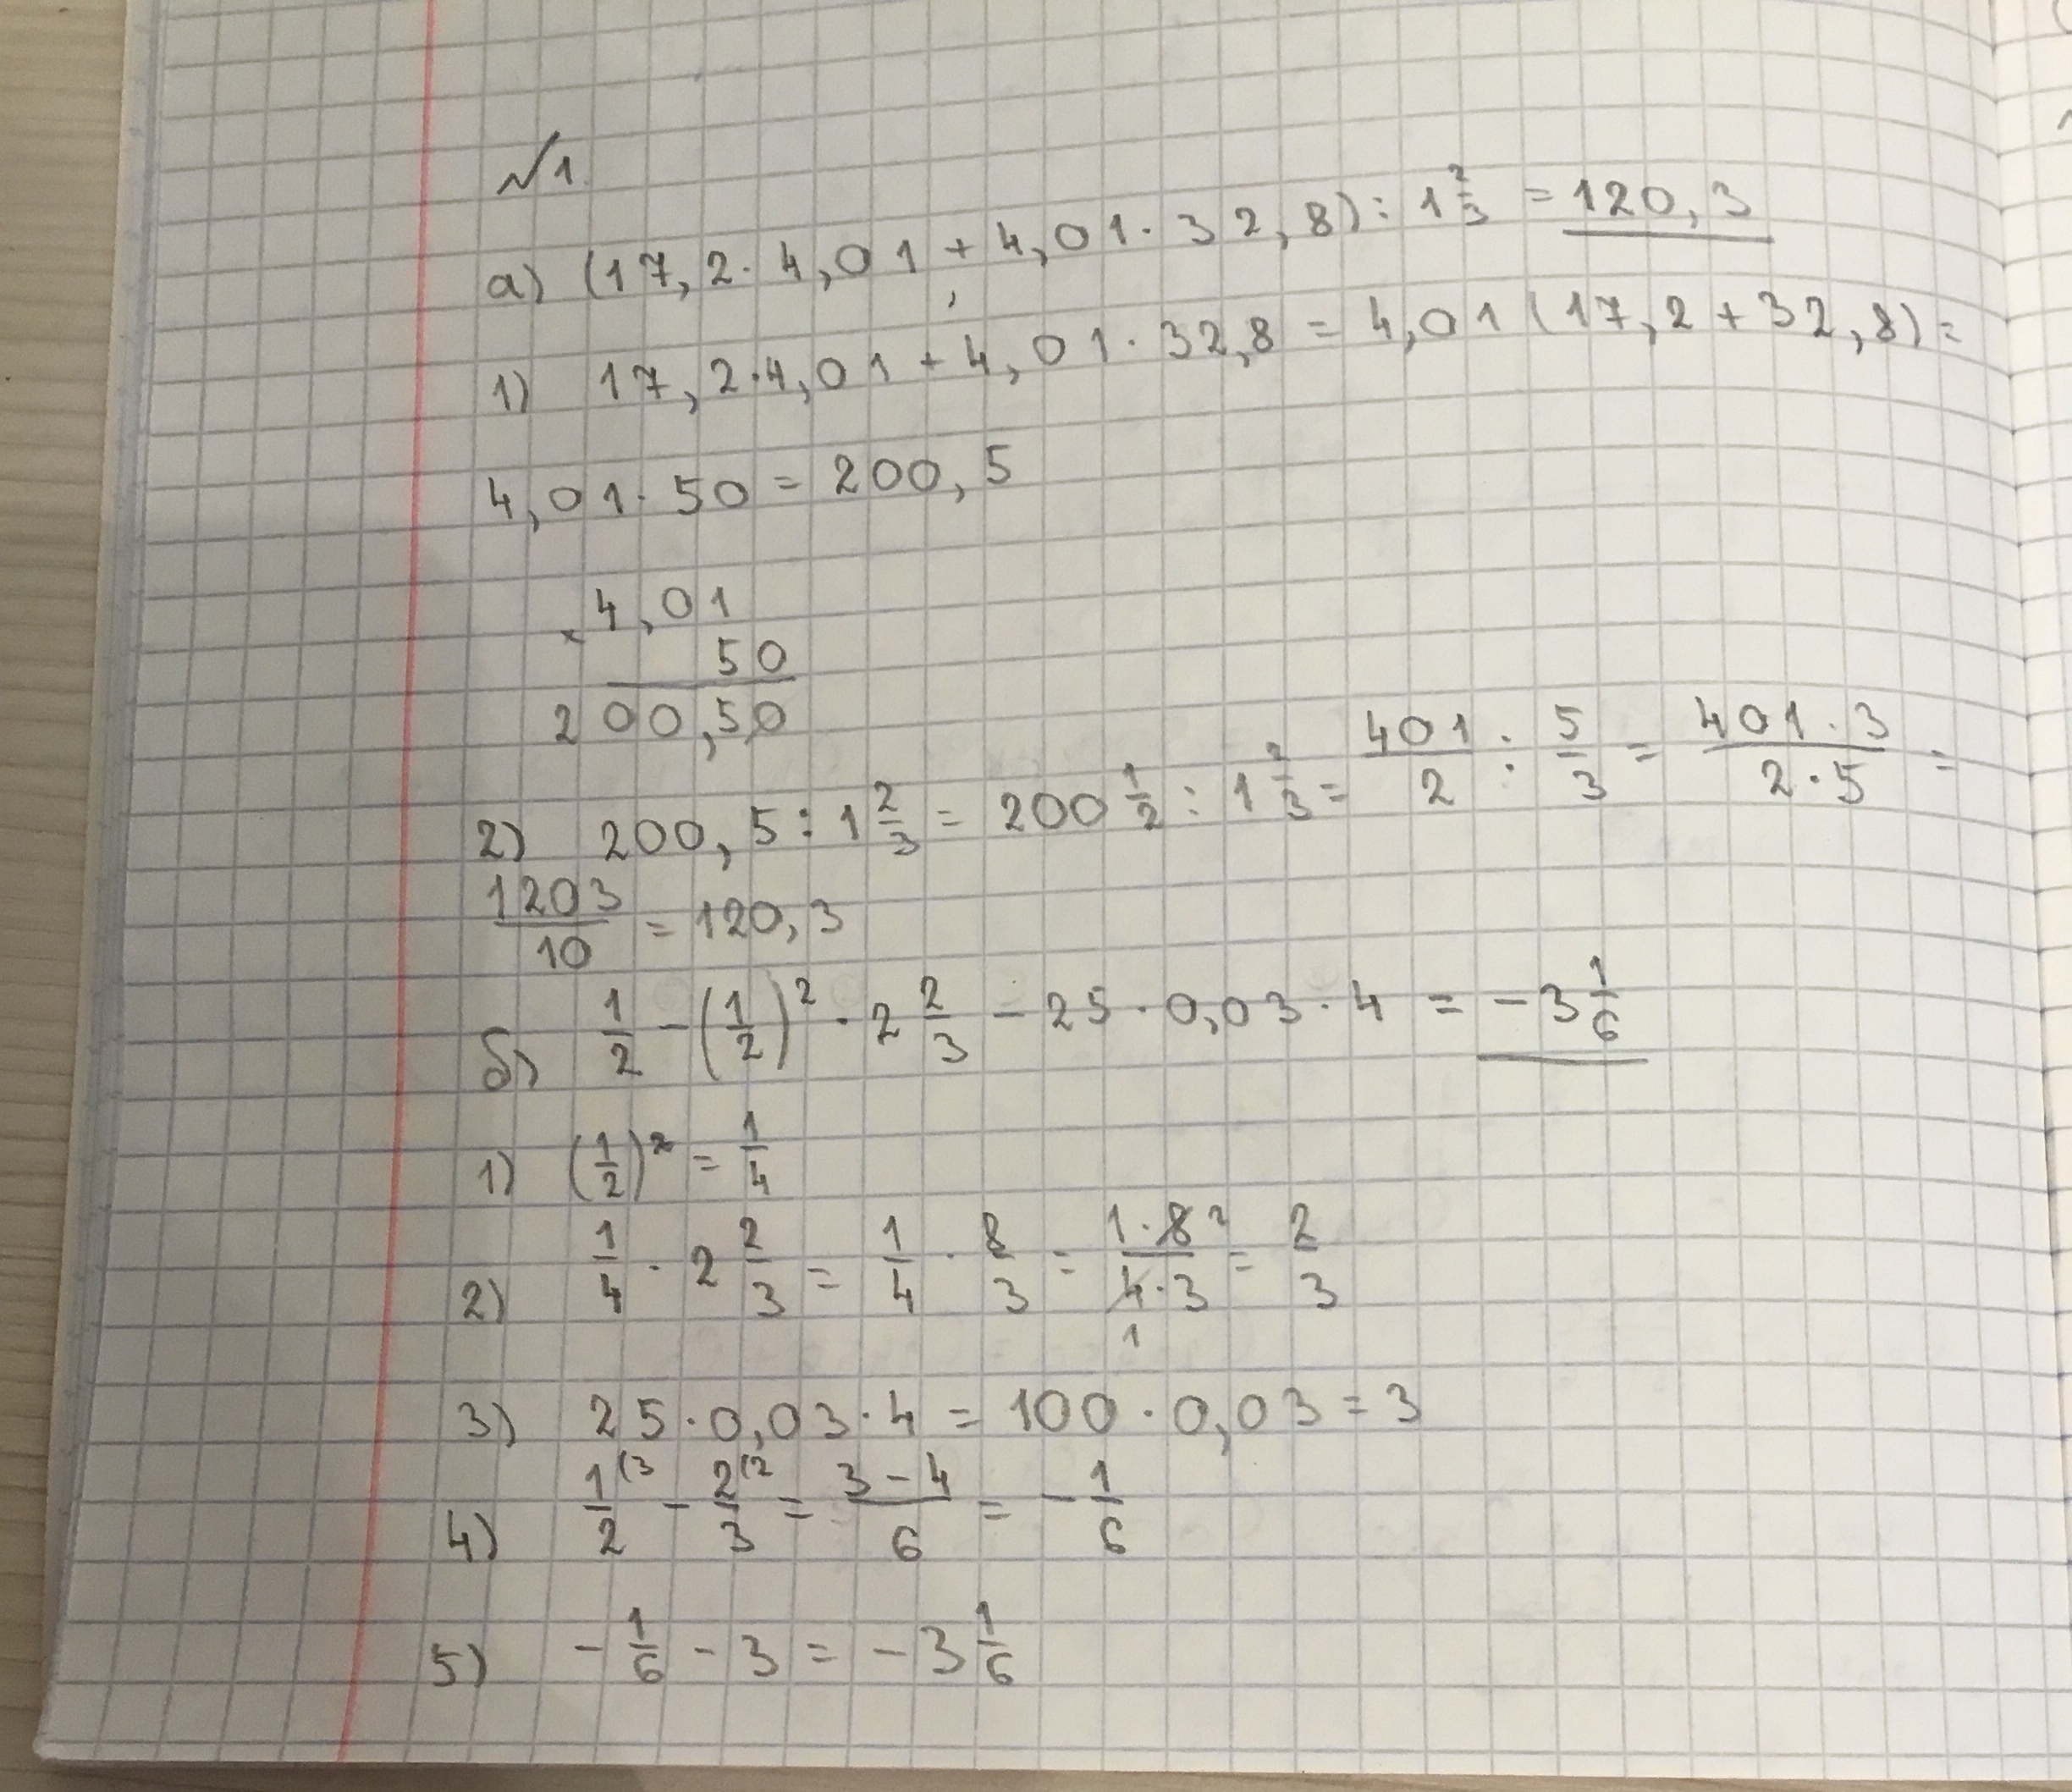 №1.
а) (17,2·4,01 + 4,01·32,8) : 1 2/3 = 120,3
1) 17,2·4,01 + 4,01·32,8 = 4,01(17,2+32,8) =
4,01·50 = 200,5
× 4,01
50
200,50
2) 200,5 : 1 2/3 = 200 1/2 : 1 2/3 = 401/2 : 5/3 = 401·3/2·5 =
1203/10 = 120,3
б) 1/2 - (1/2)² · 2 2/3 - 25·0,03·4 = -3 1/6
1) (1/2)² = 1/4
2) 1/4 · 2 2/3 = 1/4 · 8/3 = 1·8²/4·3 = 2/3
1
3) 25·0,03·4 = 100·0,03 = 3
4) 1(3/2 - 2(2/3 = 3-4/6 = -1/6
5) -1/6 - 3 = -3 1/6